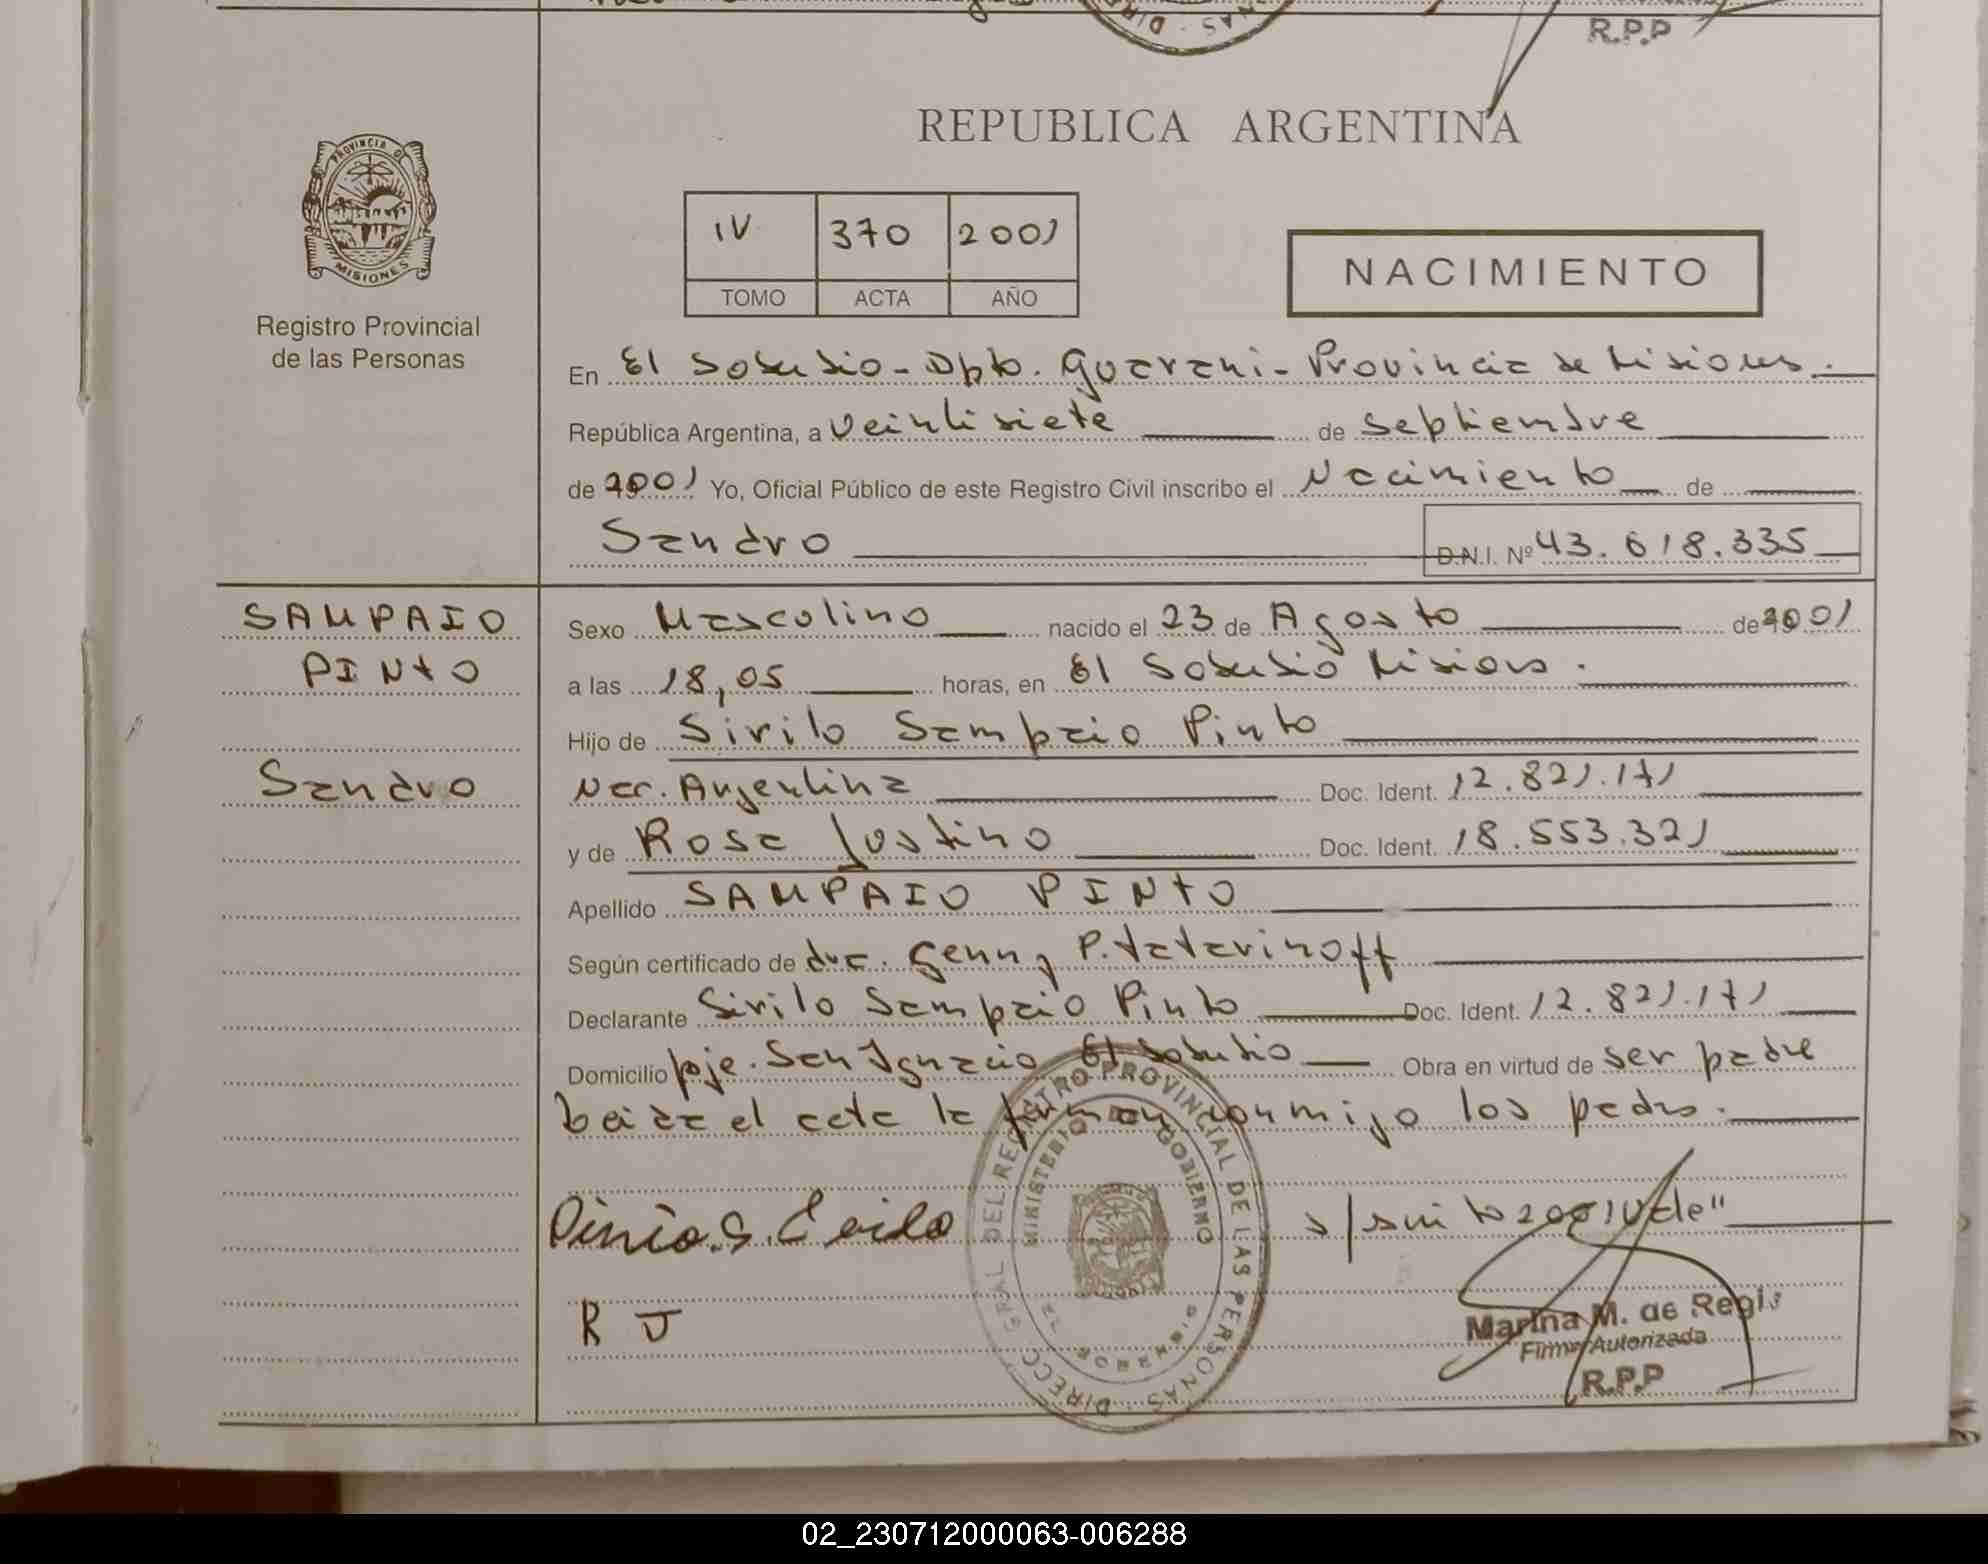 R.P.P
REPUBLICA ARGENTINA
PROVINCIA D
MISIONES
Registro Provincial
de las Personas
IV 370 2001
TOMO ACTA AÑO
NACIMIENTO
En El Soberbio - Dpto. Guarani - Provincia de Misiones.
República Argentina, a Veintisiete de Septiembre
de 2001 Yo, Oficial Público de este Registro Civil inscribo el Nacimiento de
Sandro D.N.I. Nº 43.618.335
SAMPAIO
PINTO
Sandro
Sexo Masculino nacido el 23 de Agosto de 2001
a las 18,05 horas, en El Soberbio Misiones.
Hijo de Sirilo Sampaio Pinto
Nac. Argentina Doc. Ident. 12.821.171
y de Rosa Justino Doc. Ident. 18.553.321
Apellido SAMPAIO PINTO
Según certificado de dra. Genny P. Tatarinoff
Declarante Sirilo Sampaio Pinto Doc. Ident. 12.821.171
Domicilio pje. San Ignacio El Soberbio Obra en virtud de ser padre
Leida el acta la firman conmigo los padres.
DIRECC. GRAL. DEL REGISTRO PROVINCIAL DE LAS PERSONAS
MINISTERIO DE GOBIERNO
R J
Marina M. de Regis
Firma Autorizada
R.P.P
02_230712000063-006288